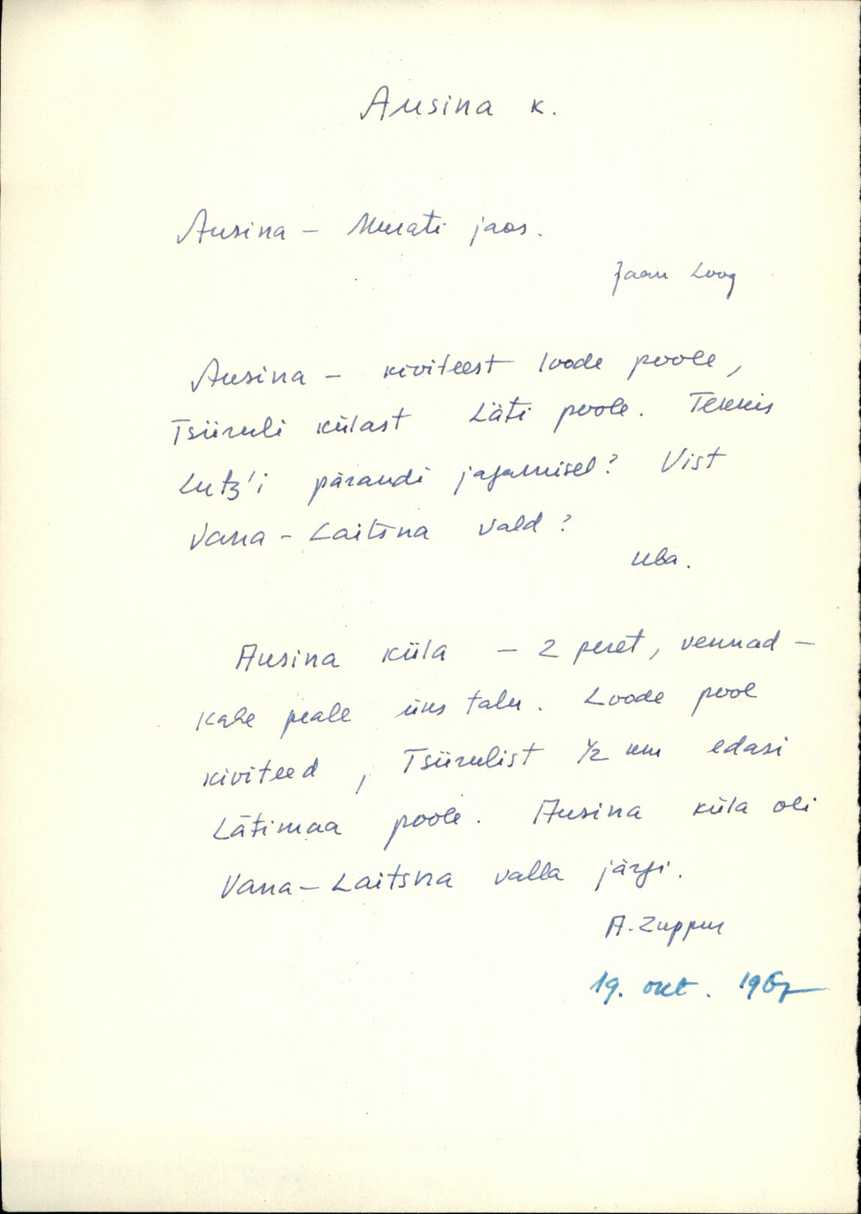 Ausina k.
Ausina – Murati jaos.
Jaan Loog
Ausina – kiviteest loode poole,
Tsiiruli külast Läti poole. Tekkis
Lutz'i pärandi jagamisel? Vist
Vana-Laitsna vald?
Uba.
Ausina küla – 2 peret, vennad –
Kahe peale üks talu. Loode pool
kiviteed, Tsiirulist 1/2 km edasi
Lätimaa poole. Ausina küla oli
Vana-Laitsna valla järgi.
A. Zuppur
19. okt. 1967